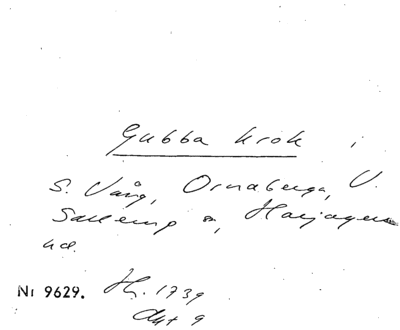 Gubba krok i
S. Vång, Ornaberga, V.
Sallerup s, Harjagers
hd.
Nr 9629. Hh. 1739
Akt 9